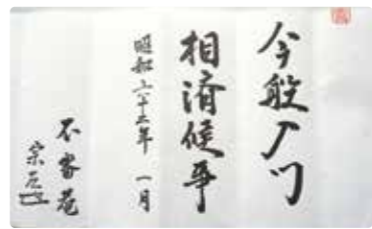 今般入门
相済候事
昭和 年 一月
不審菴
宗左